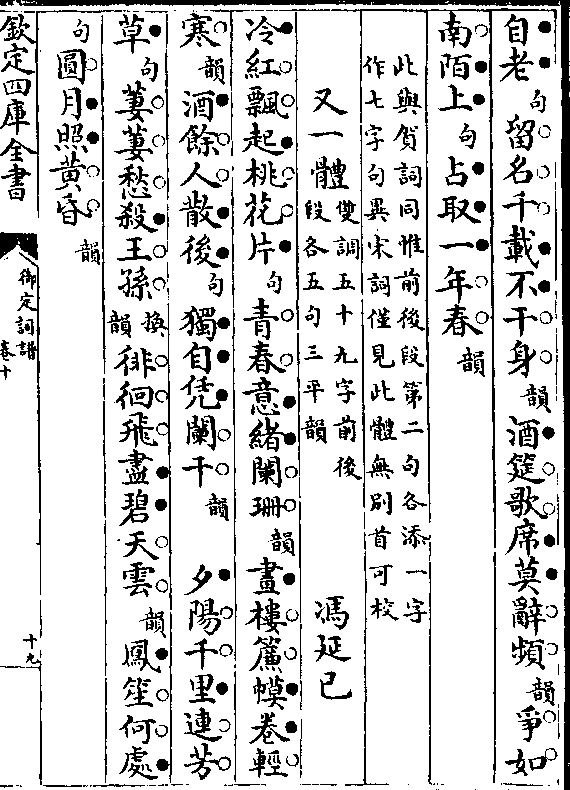 自老句留名千載不干身韻酒筵歌席莫辭頻韻爭如
南陌上句占取一年春韻
此與賀詞同惟前後段第二句各添一字
作七字句異宋詞僅見此體無別首可校
又一體雙調五十九字前後段各五句三平韻 馮延巳
冷紅飄起桃花片句青春意緒闌珊韻畫樓簾幙卷輕
寒韻酒餘人散後句獨自凭闌干韻 夕陽千里連芳
草句萋萋愁殺王孫換韻徘徊飛盡碧天雲韻鳳笙何處
句圓月照黃昏韻
欽定四庫全書
御定詞譜
卷十
十九